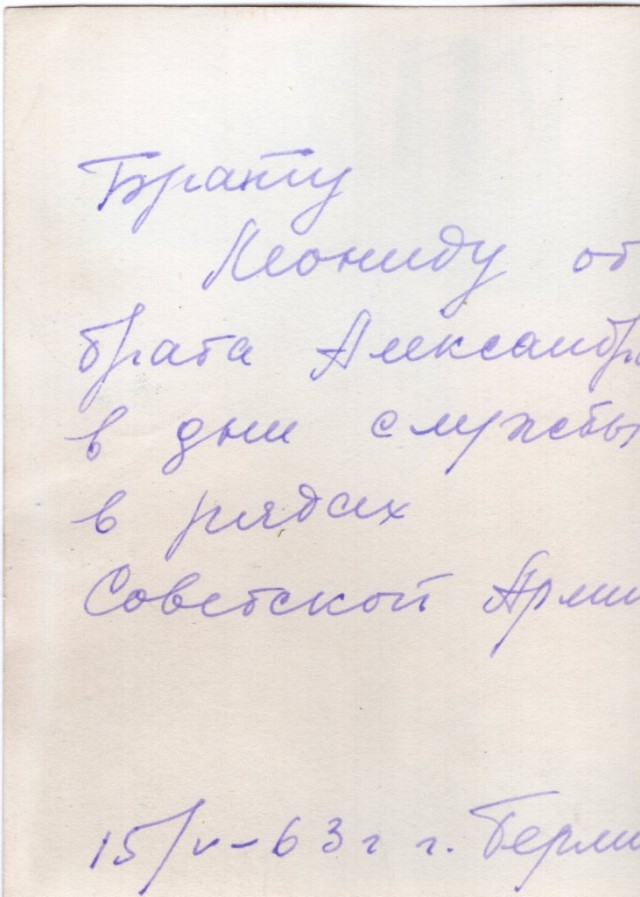 Брату
Леониду от
брата Александра
в дни службы
в рядах
Советской Арми
15/V-63 г г. Берли